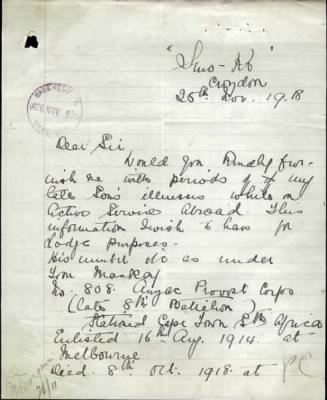 Croydon
25th Nov. 1918
Dear Sir
Would You Kindly fur-
nish me with periods of my
late Son's illnesses while on
Active Service Abroad This
information I wish to have for
Lodge purposes-
His number etc as under
Tom Mackay
No. 808. Anzac Provost Corps
(Late 8th Batallion)
Stationed Cape Town Sth Africa
Enlisted 16th Aug. 1914 at
Melbourne
Died. 8th Oct. 1918. at